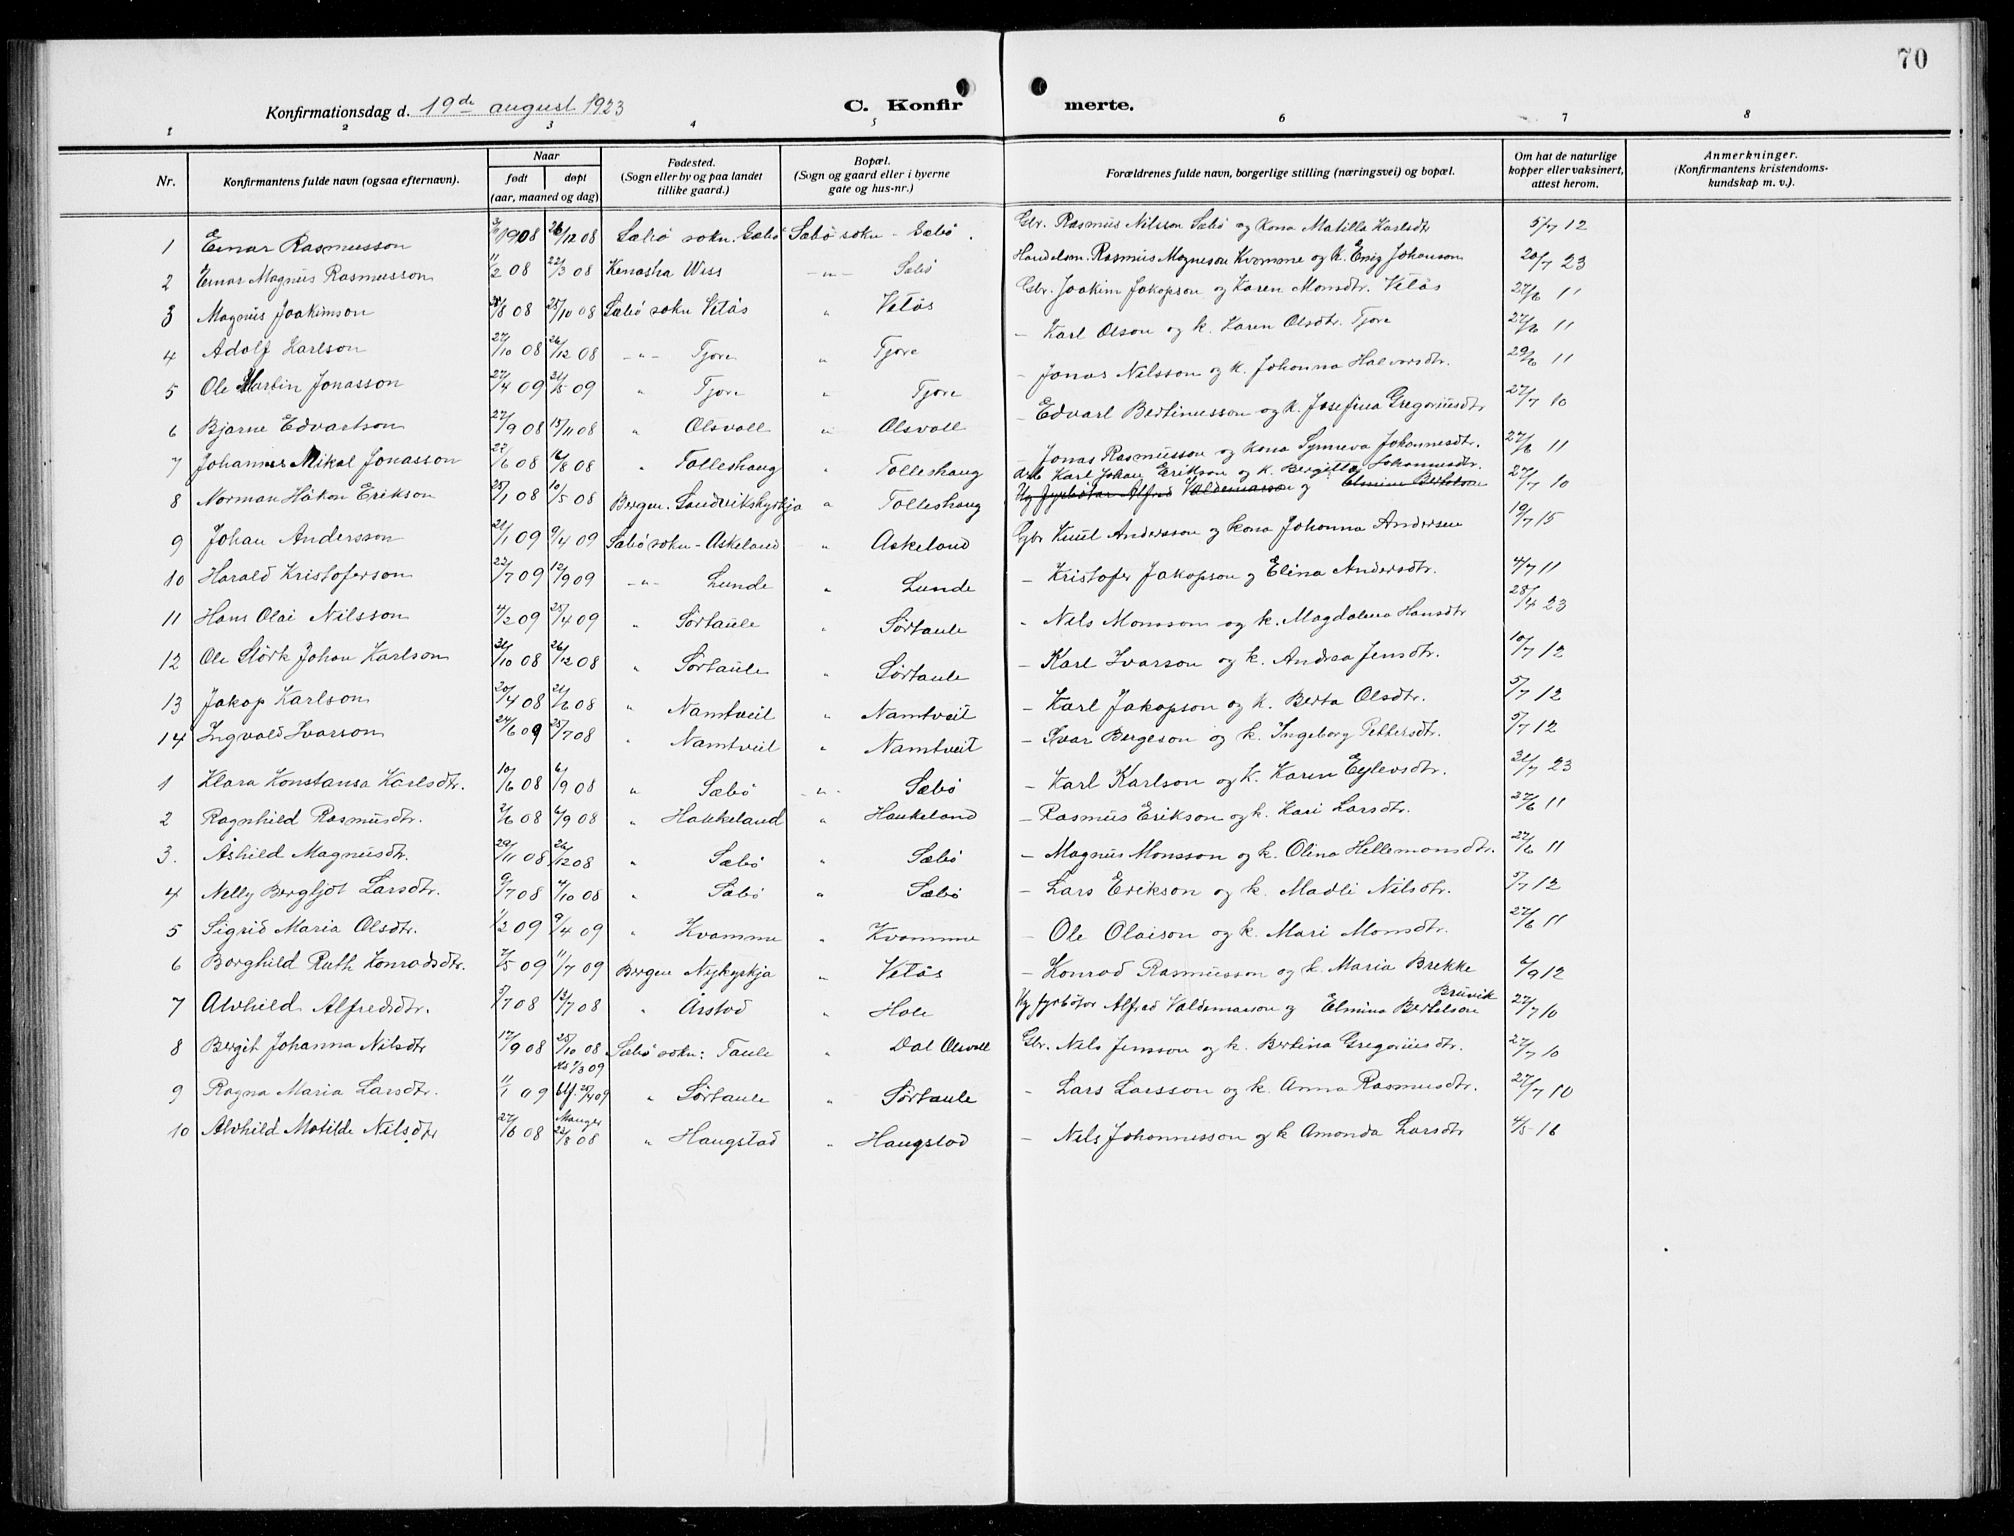 70
Konfirmationsdag d. 19de august 1923 C. Konfir merte.
1 2 3 4 5 6 7 8
Nr. Konfirmantens fulde navn (ogsaa efternavn). Naar født døpt (aar, maaned og dag) Fødested. (Sogn eller by og paa landet tillike gaard.) Bopæl. (Sogn og gaard eller i byerne gate og hus-nr.) Forældrenes fulde navn, borgerlige stilling (næringsvei) og bopæl. Om hat de naturlige kopper eller vaksinert, attest herom. Anmerkninger. (Konfirmantens kristendoms- kundskap m. v.).
1 Einar Rasmusson 1908 26/12 08 Sæbø sokn. Sæbø Sæbø sokn - Sæbø. Gbr. Rasmus Nilsson Sæbø og kona Matilla Karlsdtr 5/7 12
2 Einar Magnus Rasmusson 11/2 08 22/3 08 Kenosha Wiss -"- Sæbø Handelsm. Rasmus Magneson Kvamme og k. Enig Johanson 20/7 23
3 Magnus Joakimson 28/8 08 25/10 08 Sæbø sokn Vetås " Vetås Gbr. Joakim Jakopson og Karen Monsdtr. Vetås 27/6 11
4 Adolf Karlson 27/10 08 26/12 08 -"- Tjore " Tjore - Karl Olson og k. Karen Olsdtr. Tjore 27/6 11
5 Ole Martin Jonasson 27/4 09 31/5 09 " Tjore " Tjore - Jonas Nilsson og k. Johanna Halvorsdtr. 29/6 11
6 Bjarne Edvartson 27/9 08 15/11 08 " Olsvoll " Olsvoll - Edvart Bertinusson og k. Josefina Gregoriusdtr 27/7 10
7 Johannes Mikal Jonasson 22/6 08 16/8 08 " Tolleshaug " Tolleshaug - Jonas Rasmusson og kona Synneva Johannesdtr. 27/6 11
8 Norman Håkon Erikson 25/1 08 10/5 08 Bergen. Sandvikskyrkja " Tolleshaug Arb Karl Johan Erikson og k. Bergitta Johannesdtr. 27/7 10
Ug fyrbøtar Alfred Valdemarson og Elmina Bertelson
9 Johan Andersson 21/1 09 9/4 09 Sæbø sokn - Askeland " Askeland Gbr Knut Andersson og kona Johanna Andersen 19/7 15
10 Harald Kristoferson 22/7 09 12/9 09 -"- Lunde " Lunde - Kristofer Jakopson og Elina Andersdtr. 4/7 11
11 Hans Olai Nilsson 4/2 09 25/4 09 " Sørtaule " Sørtaule - Nils Monsson og k. Magdalena Hansdtr 28/4 23
12 Ole Størk Johan Karlson 31/10 08 26/12 08 " Sørtaule " Sørtaule - Karl Ivarson og k. Andrea Jensdtr. 10/7 12
13 Jakop Karlson 20/4 08 21/6 08 " Namtveit " Namtveit - Karl Jakopson og k. Berta Olsdtr. 5/7 12
14 Ingvald Ivarson 24/6 09 25/7 08 " Namtveit " Namtveit - Ivar Bergeson og k. Ingeborg Pettersdtr. 5/7 12
1 Klara Konstansa Karlsdtr. 10/6 08 6/9 08 " Sæbø -"- Sæbø - Karl Karlson og k. Karen Eylevsdtr. 31/7 23
2 Ragnhild Rasmusdtr. 2/6 08 6/9 08 " Haukeland " Haukeland - Rasmus Erikson og k. Kari Larsdtr. 27/6 11
3. Åshild Magnusdtr. 29/11 08 26/12 08 " Sæbø " Sæbø - Magnus Monsson og k. Olina Hellemonsdtr. 27/6 11
4 Nelly Bergljot Larsdtr. 9/7 08 4/10 08 " Sæbø " Sæbø - Lars Erikson og k. Madli Nilsdtr. 5/7 12
5 Sigrid Maria Olsdtr. 11/2 09 9/4 09 " Kvamme " Kvamme - Ole Olaison og k. Mari Monsdtr. 27/6 11
6 Borghild Ruth Konradsdtr. 2/5 09 11/7 09 Bergen Nykyrkja " Vetås - Konrad Rasmusson og k. Maria Brekke 6/9 12
7 Alvhild Alfredsdtr. 5/7 08 12/7 08 " Årstad " Hole Ug fyrbøtar Alfred Valdemarson og Elmina Bertelson Bruvik 27/7 10
8 Bergit Johanna Nilsdtr 17/9 08 25/10 08 Sæbø sokn: Taule " Dal Olsvoll Gbr. Nils Jensson og k. Bertina Gregoriusdtr. 27/7 10
9 Ragna Maria Larsdtr. 11/1 09 7/3 09 25/4 09 " Sørtaule " Sørtaule - Lars Larsson og k. Anna Rasmusdtr. 27/7 10
10 Alvhild Matilde Nilsdtr 27/6 08 Manger 23/8 08 " Haugstad " Haugstad - Nils Johannesson og k Amanda Larsdtr 4/5 16